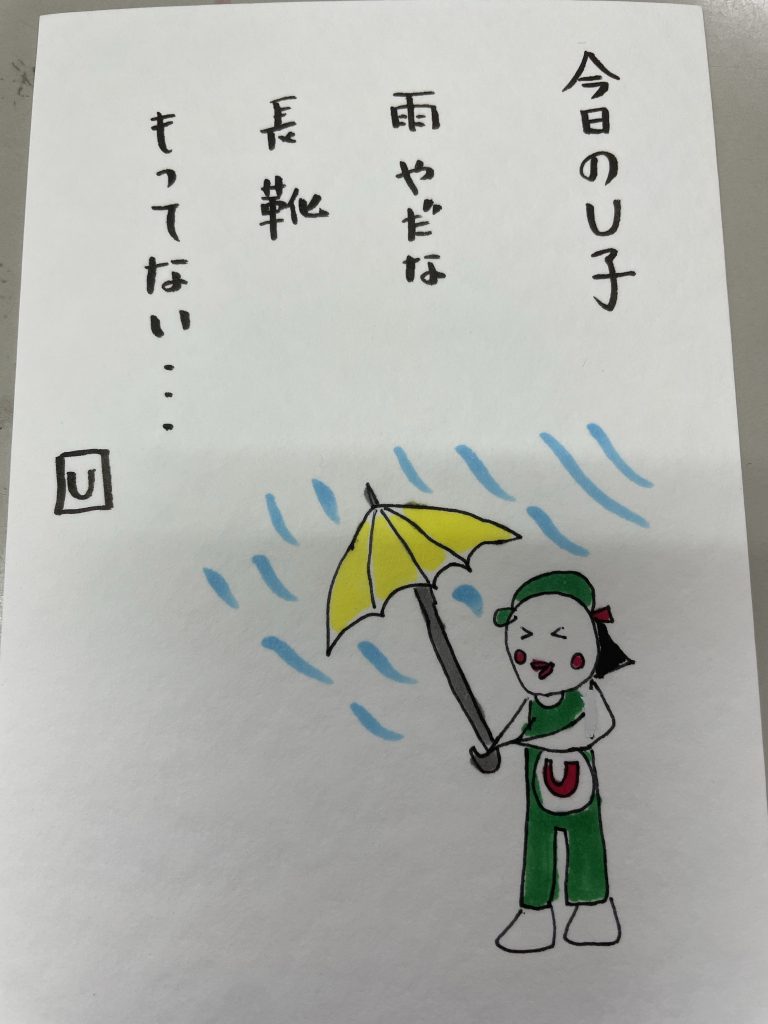 今日のU子
雨やだな
長靴
もってない...
U
U